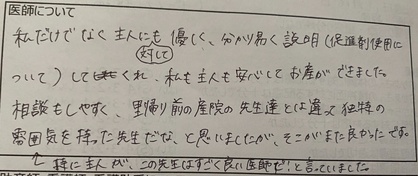 医師について
私だけでなく主人にも対して優しく、分かり易く説明(促進剤使用に
ついて)してくれ、私も主人も安心してお産ができました。
相談もしやすく、里帰り前の産院の先生達とは違って独特の
雰囲気を持った先生だな、と思いましたが、そこがまた良かったです。
↑特に主人が、この先生はすごく良い医師だ!と言っていました。